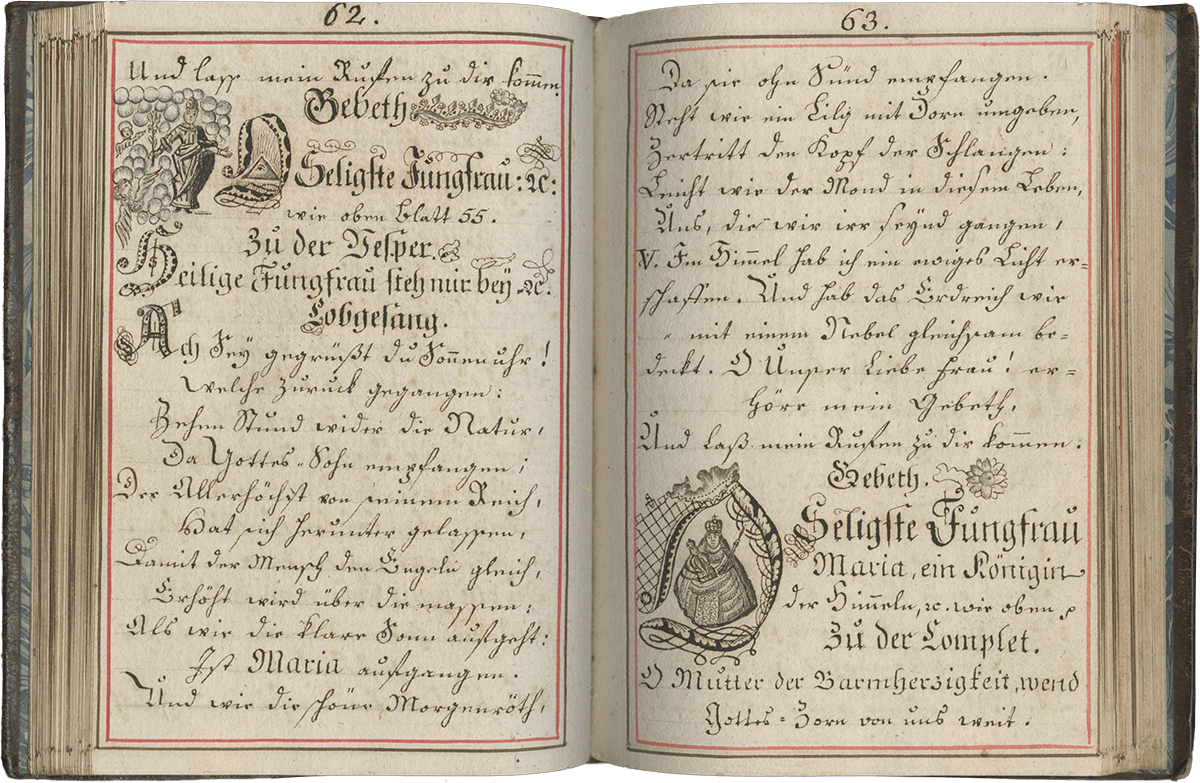 62.
Und lass mein Ruffen zu dir kom̅en.
Gebeth
O Seligste Jungfrau: ꝛc:
wie oben blatt 55.
Zu der Vesper.
Heilige Jungfrau steh mir bey ꝛc.
Lobgesang.
Ach Sey gegrüßt du Sonnen uhr!
welche zuruck gegangen:
Zehen Stund wider die Natur,
Da Gottes-Sohn empfangen;
Der Allerhöchst von seinem Reich,
Hat sich herunter gelassen,
Damit der Mensch den Engeln gleich,
Erhöht wird über die massen:
Als wie die klare Sonn aufgeht:
Ist Maria aufgangen.
Und wie die schöne Morgenröth,
63.
Da sie ohn Sünd empfangen.
Steht wie ein Lilg mit Dorn umgeben,
Zertritt den Kopf der Schlangen:
Leicht wie der Mond in diesem Leben,
Uns, die wir irr seynd gangen,
V. Im Himmel hab ich ein ewiges Licht er-
schaffen. Und hab das Erdreich wie
" mit einem Nebel gleichsam be-
deckt. O Unser Liebe Frau! er-
höre mein Gebeth,
Und laß mein Ruffen zu dir kommen.
Gebeth.
O Seligste Jungfrau
Maria, ein Königin
der Himeln, ꝛc. wie oben
Zu der Complet.
O Mutter der Barmherzigkeit, wend
Gottes-Zorn von uns weit.